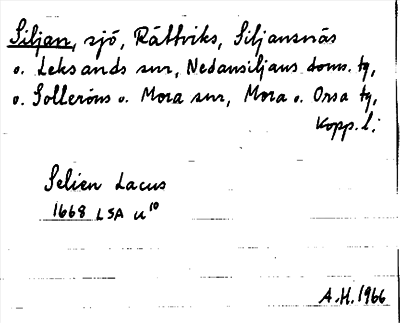 Siljan, sjö, Rättviks, Siljansnäs
o. Leksands snr, Nedansiljans doms. tg,
o. Solleröns o. Mora snr, Mora o. Orsa tg,
Kopp. l.;
Selien Lacus
1668 LSA U 10
A.H. 1966